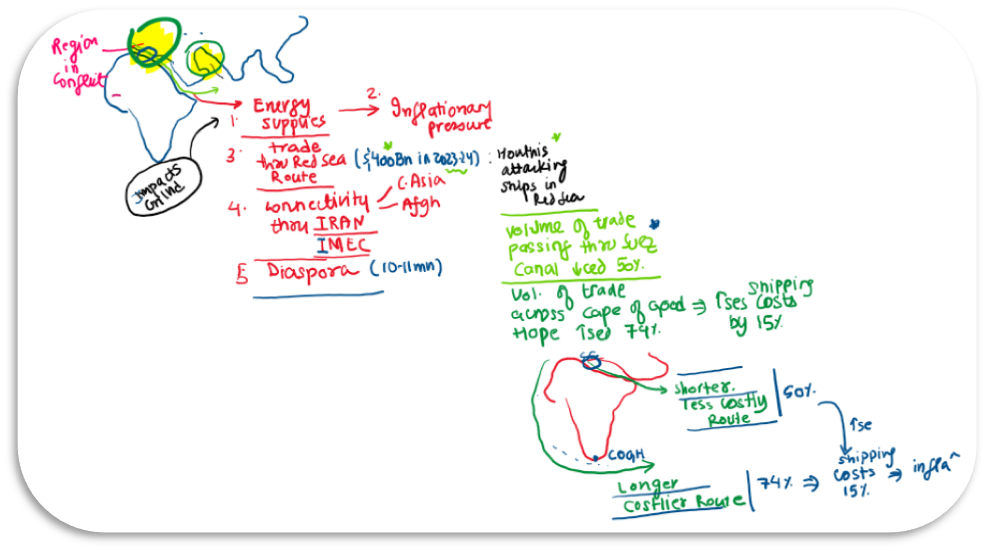 Region
in
Conflict
Impacts
GRInd
1. Energy
supplies
2. Inflationary
pressure
3. trade
thru Red sea
Route
($400Bn in 2023-24) :
Houthis
attacking
ships in
Red sea
4. Connectivity
thru IRAN
IMEC
C.Asia
Afgh
5 Diaspora (10-11mn)
Volume of trade
passing thru Suez
Canal ↓ced 50%.
Vol. of trade
across cape of good
Hope ↑sed 74%.
⇒ ↑ses shipping
costs
by 15%
shorter.
less costly
Route
50%.
↑se
COGH
Longer
Costlier Route
74% ⇒
shipping
costs
15%
⇒ infla^